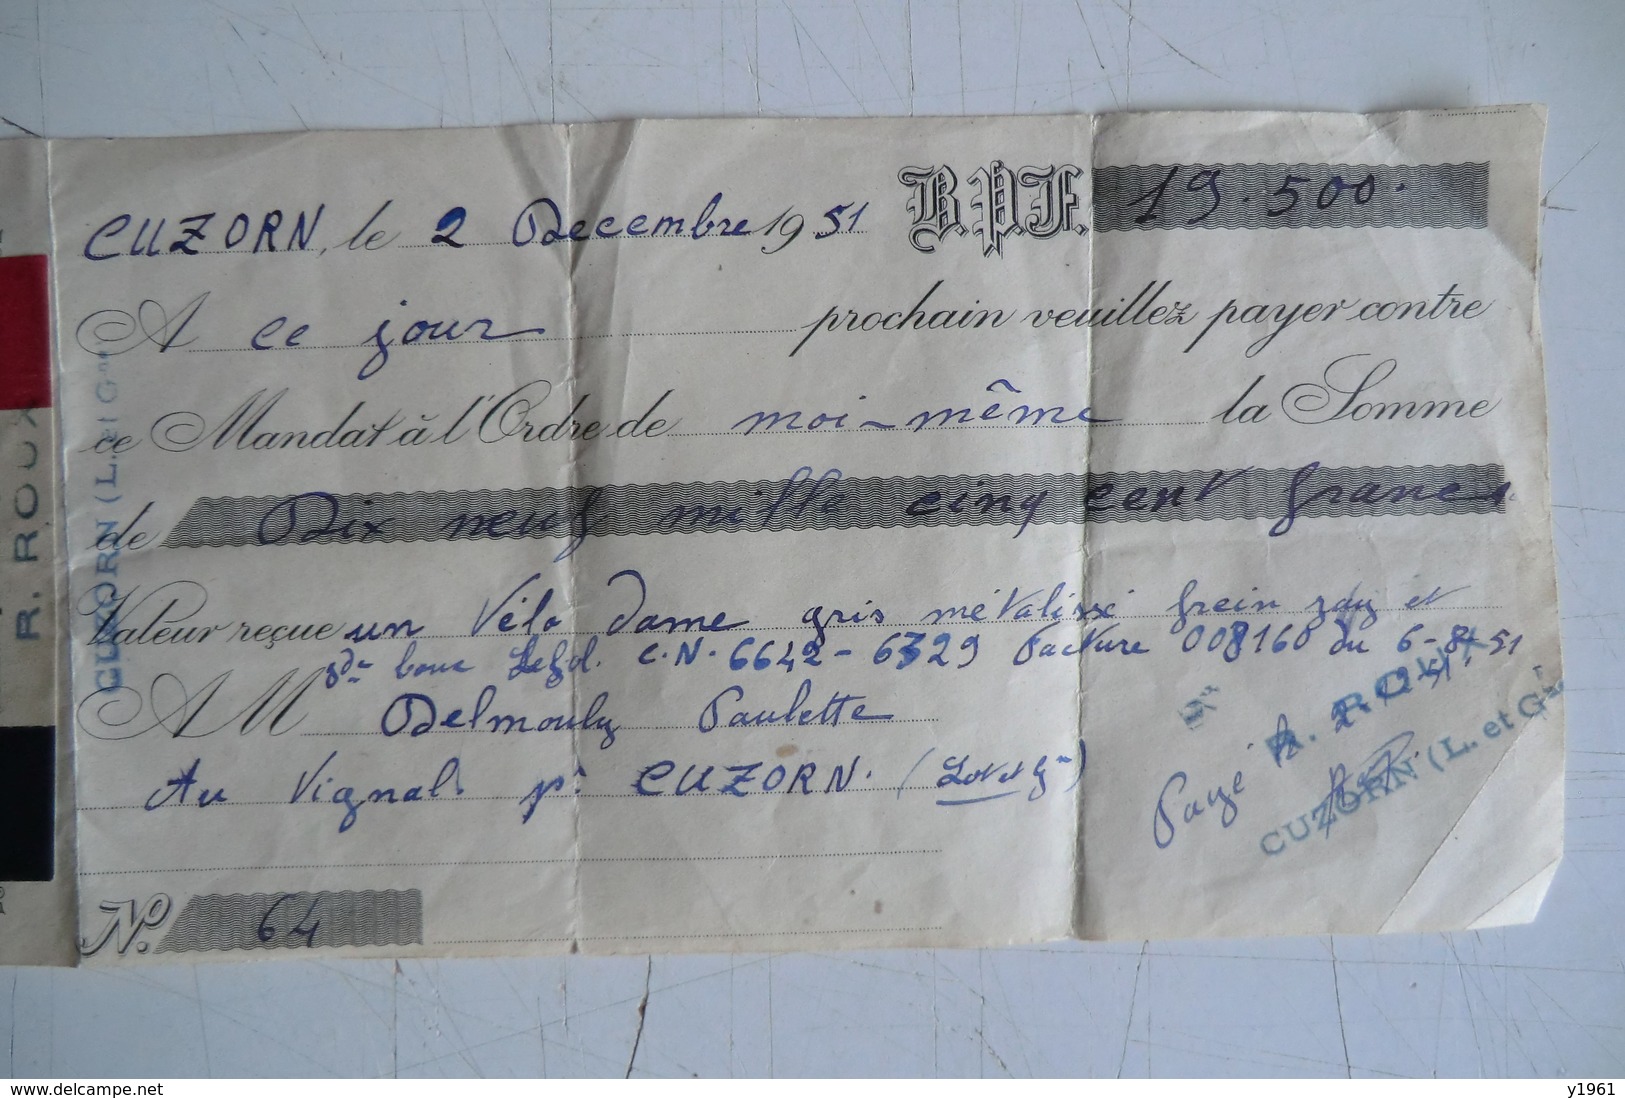 CUZORN, le 2 Decembre 1951 B.P.F. 19.500.
A ce jour prochain veuillez payer contre
ce Mandat à l'Ordre de moi-même la Somme
de Dix neuf mille cinq cent francs
Valeur reçue un Vélo Dame gris métalisé frein et
C.N. 6642-6329 Facture 008160 du 6-8-51
A M Delmouly Paulette
Au Vignal pr CUZORN. (Lot et Gne)
Payé
R. ROUX
CUZORN (L. et Gne)
No. 64
R. ROUX
CUZORN (L. et Gne)
www.delcampe.net
y1961